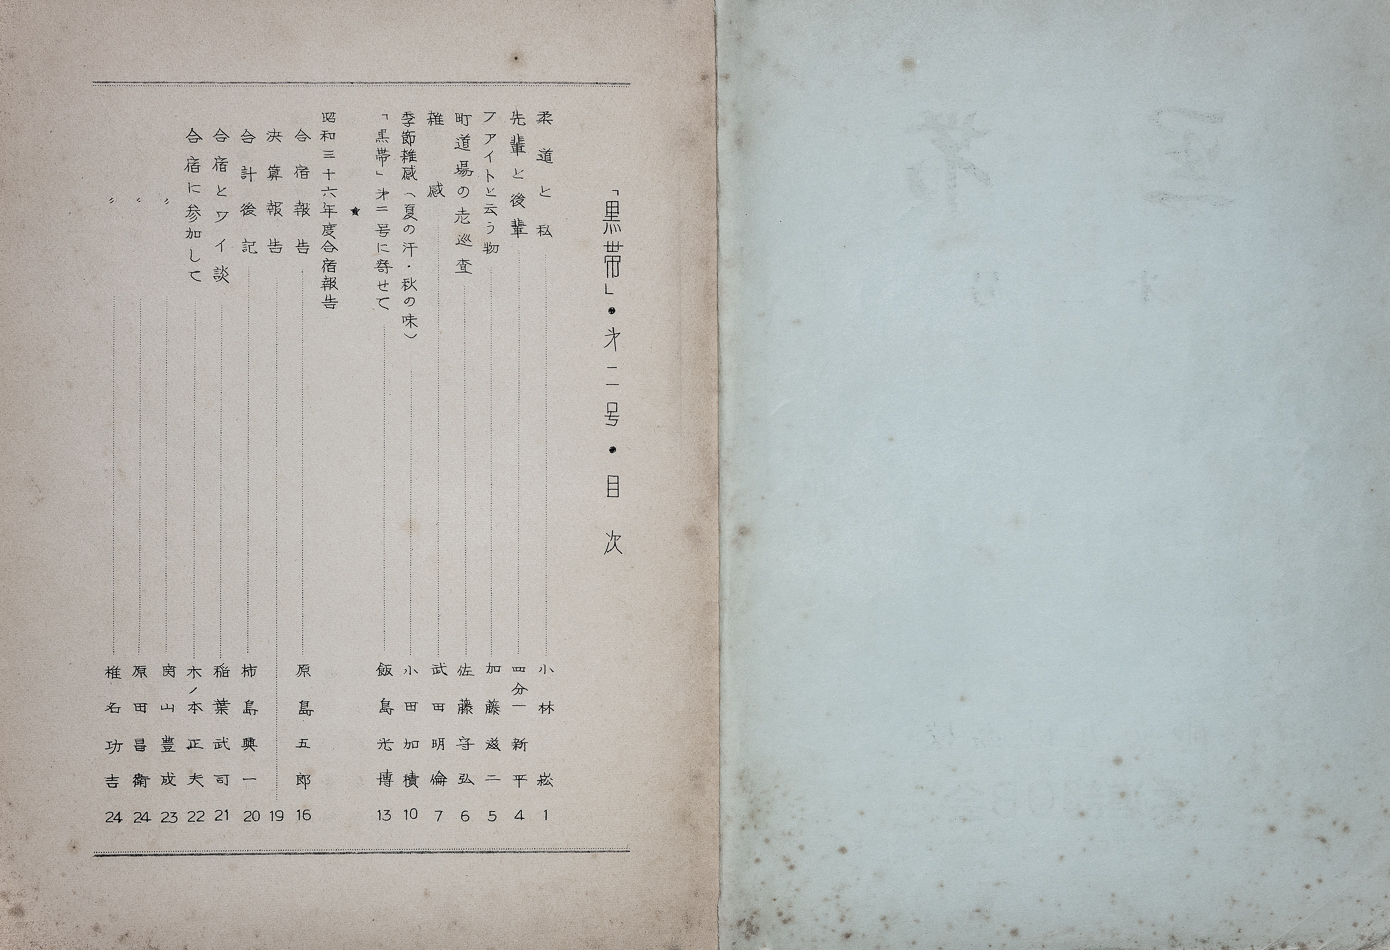 「黒帯」・才二号・目次
柔道と私 小林崧 1
先輩と後輩 四分一新平 4
ファイトと云う物 加藤滋二 5
町道場の老巡査 佐藤守弘 6
雑感 武田明倫 7
季節雑感(夏の汗・秋の味) 小田加積 10
「黒帯」才二号に寄せて 飯島光博 13
★
昭和三十六年度合宿報告
合宿報告 原島五郎 16
決算報告 19
合計後記 柿島興一 20
合宿とワイ談 稲葉武司 21
合宿に参加して 木ノ本正夫 22
〃 南山豊成 23
〃 原田昌衛 24
〃 椎名功吉 24